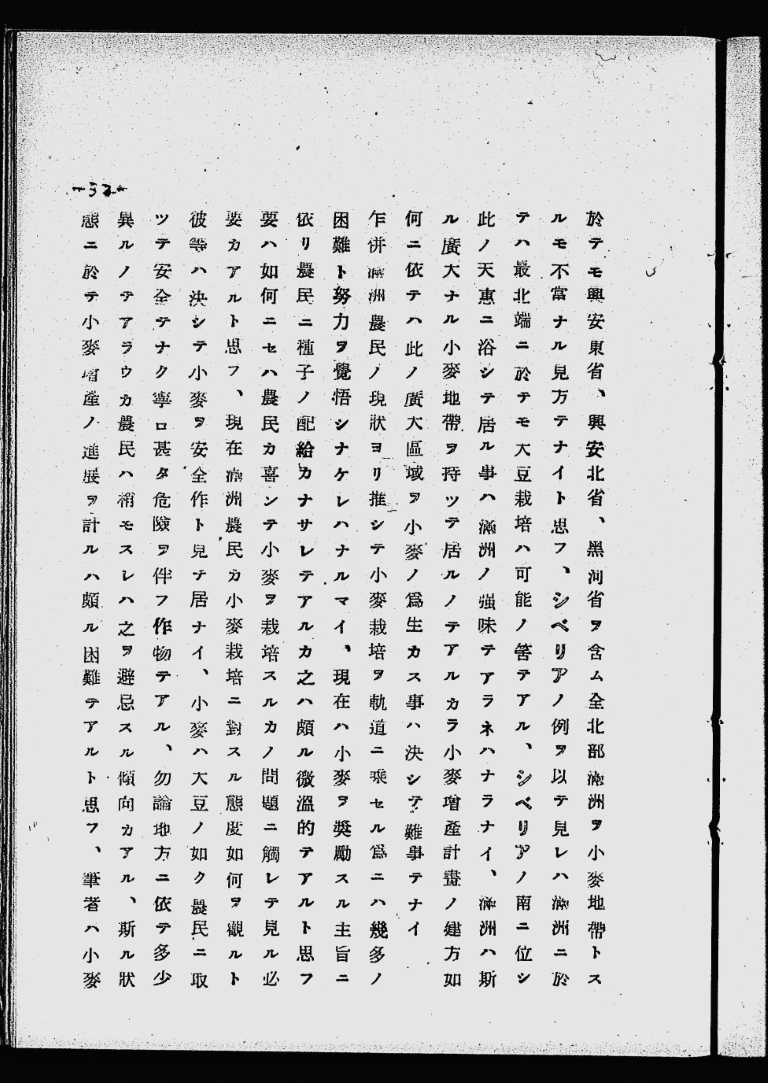 於テモ興安東省、興安北省、黑河省ヲ含ム全北部滿洲ヲ小麥地帶トス
ルモ不當ナル見方テナイト思フ、シベリアノ例ヲ以テ見レハ滿洲ニ於
テハ最北端ニ於テモ大豆栽培ハ可能ノ筈テアル、シベリアノ南ニ位シ
此ノ天惠ニ浴シテ居ル事ハ滿洲ノ强味テアラネハナラナイ、滿洲ハ斯
ル廣大ナル小麥地帶ヲ持ツテ居ルノテアルカラ小麥增產計畫ノ建方如
何ニ依テハ此ノ廣大區域ヲ小麥ノ爲生カス事ハ決シテ難事テナイ
乍併滿洲農民ノ現狀ヨリ推シテ小麥栽培ヲ軌道ニ乘セル爲ニハ幾多ノ
困難ト努力ヲ覺悟シナケレハナルマイ、現在ハ小麥ヲ奬勵スル主旨ニ
依リ農民ニ種子ノ配給カナサレテアルカ之ハ頗ル微溫的テアルト思フ
要ハ如何ニセハ農民カ喜ンテ小麥ヲ栽培スルカノ問題ニ觸レテ見ル必
要カアルト思フ、現在滿洲農民カ小麥栽培ニ對スル態度如何ヲ觀ルト
彼等ハ決シテ小麥ヲ安全作ト見テ居ナイ、小麥ハ大豆ノ如ク農民ニ取
ツテ安全テナク寧ロ甚タ危險ヲ伴フ作物テアル、勿論地方ニ依テ多少
異ルノテアラウカ農民ハ稍モスレハ之ヲ避忌スル傾向カアル、斯ル狀
態ニ於テ小麥增產ノ進展ヲ計ルハ頗ル困難テアルト思フ、筆者ハ小麥
-32-